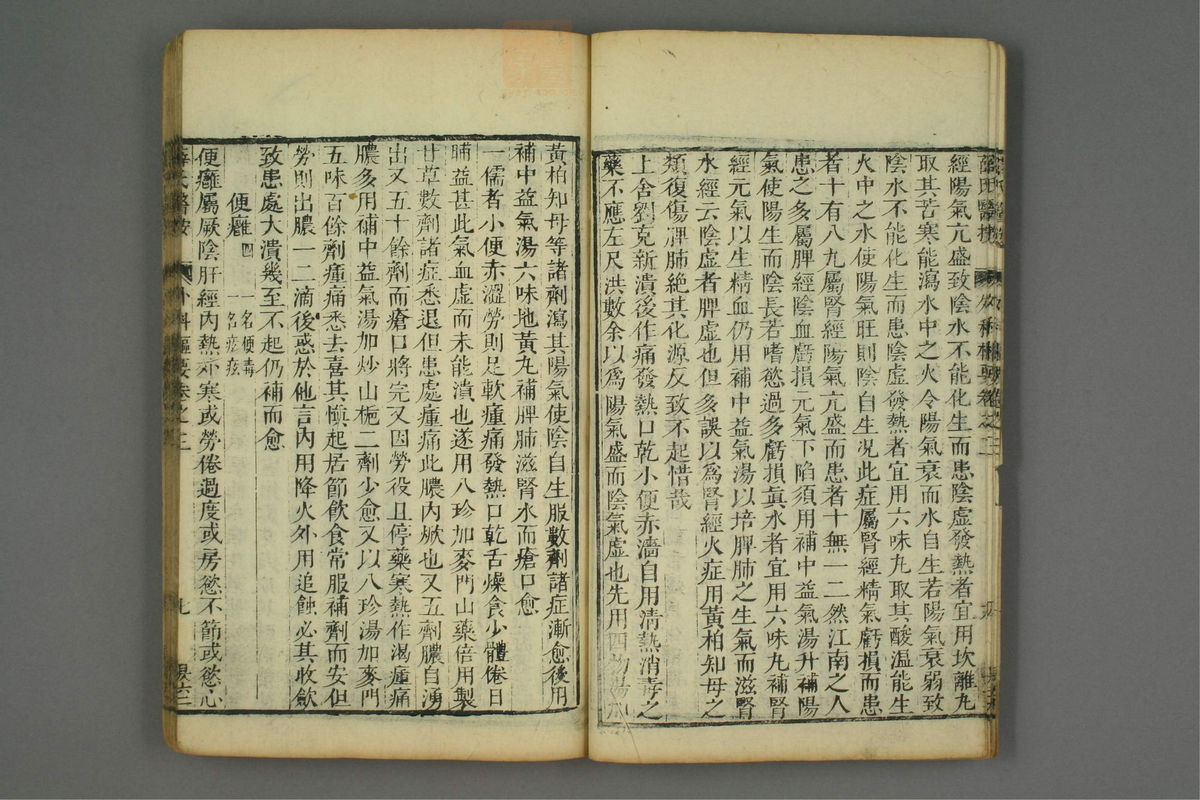 經陽氣亢盛致陰水不能化生而患陰虛發熱者宜用坎離丸
取其苦寒能瀉水中之火令陽氣衰而水自生若陽氣衰弱致
陰水不能化生而患陰虛發熱者宜用六味丸取其酸溫能生
火中之水使陽氣旺則陰自生況此症屬腎經精氣虧損而患
者十有八九屬腎經陽氣亢盛而患者十無一二然江南之人
患之多屬脾經陰血虧損元氣下陷須用補中益氣湯升補陽
氣使陽生而陰長若嗜慾過多虧損眞水者宜用六味丸補腎
經元氣以生精血仍用補中益氣湯以培脾肺之生氣而滋腎
水經云陰虛者脾虛也但多誤以爲腎經火症用黃柏知母之
類復傷脾肺絕其化源反致不起惜哉
上舍劉克新潰後作痛發熱口乾小便赤濇自用清熱消毒之
藥不應左尺洪數余以爲陽氣盛而陰氣虛也先用四物湯加
黃柏知母等諸劑瀉其陽氣使陰自生服數劑諸症漸愈後用
補中益氣湯六味地黃丸補脾肺滋腎水而瘡口愈
一儒者小便赤澀勞則足軟瘇痛發熱口乾舌燥食少體倦日
晡益甚此氣血虛而未能潰也遂用八珍加麥門山藥倍用製
甘草數劑諸症悉退但患處瘇痛此膿內焮也又五劑膿自湧
出又五十餘劑而瘡口將完又因勞役且停藥寒熱作渴瘇痛
膿多用補中益氣湯加炒山梔二劑少愈又以八珍湯加麥門
五味百餘劑瘇痛悉去喜其慎起居節飲食常服補劑而安但
勞則出膿一二滴後惑於他言內用降火外用追蝕必其收歛
致患處大潰幾至不起仍補而愈
便癰四 一名便毒 一名痃
便癰屬厥陰肝經內熱外寒或勞倦過度或房慾不節或慾心
薛氏醫按 外科樞要卷之三 九